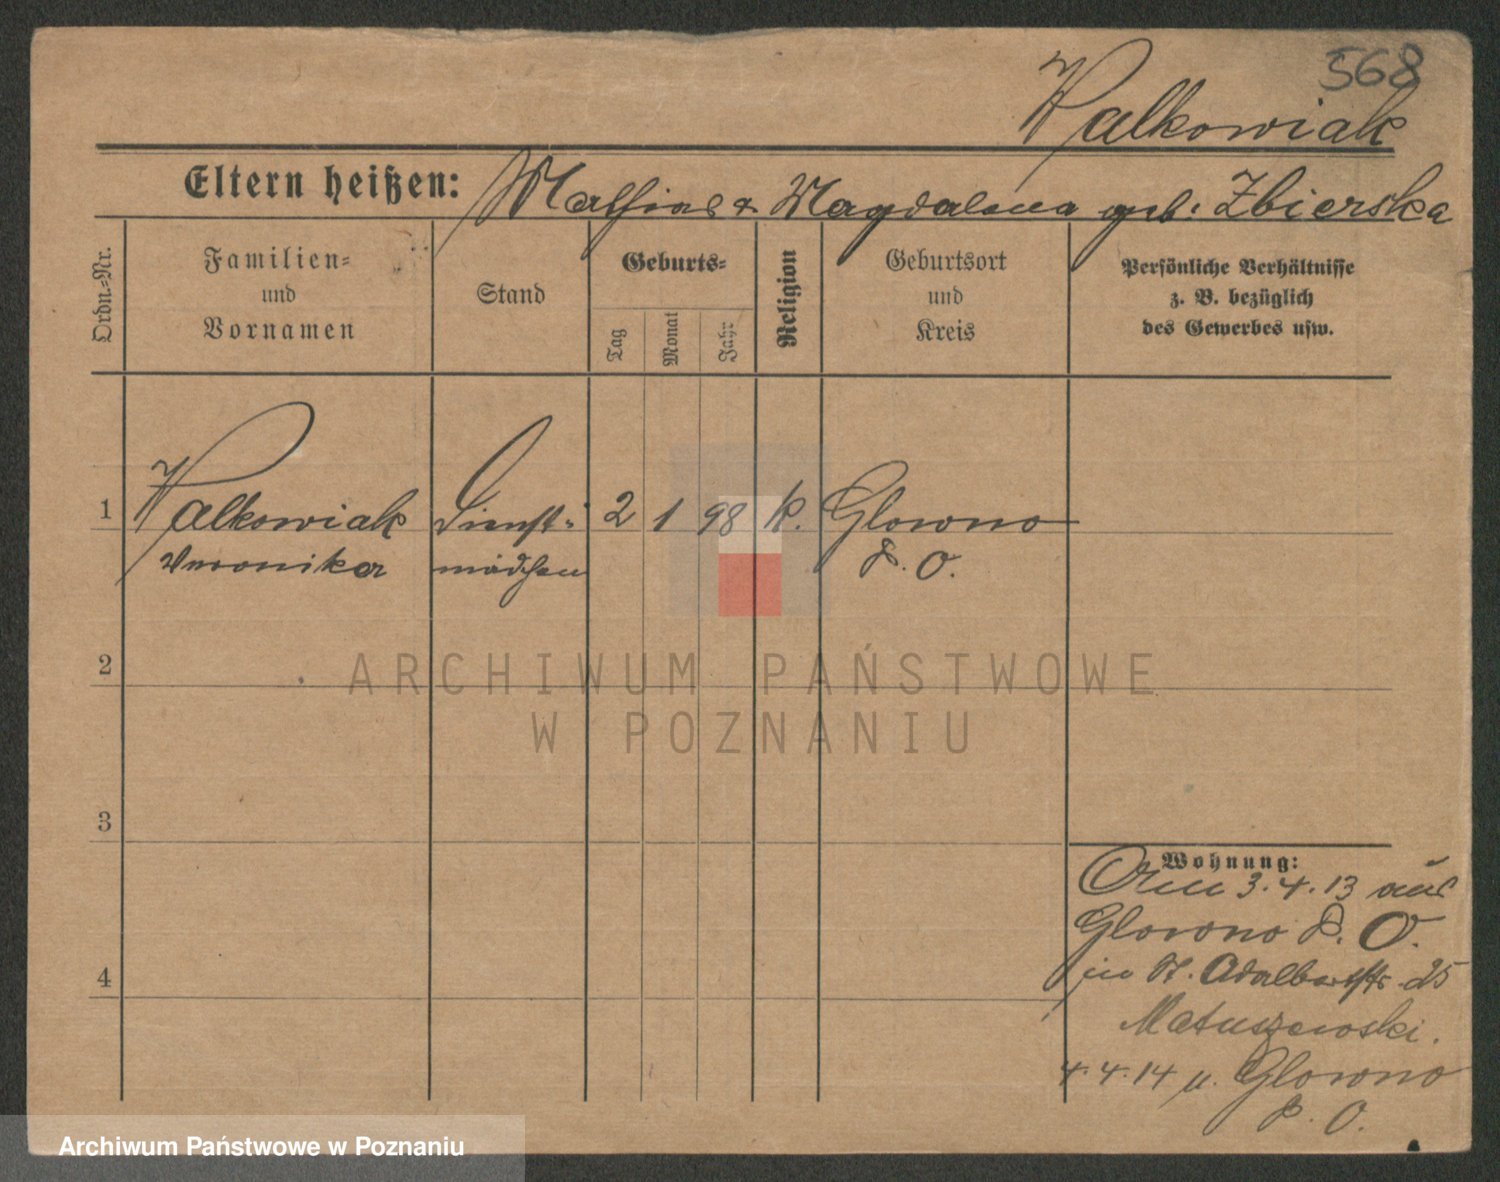 568
Walkowiak
Eltern heißen: Mathias & Magdalena geb. Zbierska
Ordn.-Nr.
Familien-
und
Vornamen
Stand
Geburts-
Tag
Monat
Jahr
Religion
Geburtsort
und
Kreis
Persönliche Verhältnisse
z. B. bezüglich
des Gewerbes usw.
1 Walkowiak Dienst- 2 1 98 k. Glowno
Veronika mädchen P. O.
2
ARCHIWUM PAŃSTWOWE
W POZNANIU
3
Wohnung:
Am 3.4.13 aus
Glowno P. O.
4
in St. Adalbertstr. 25
Matuszewski.
4.4.14 n. Glowno
P. O.
Archiwum Państwowe w Poznaniu